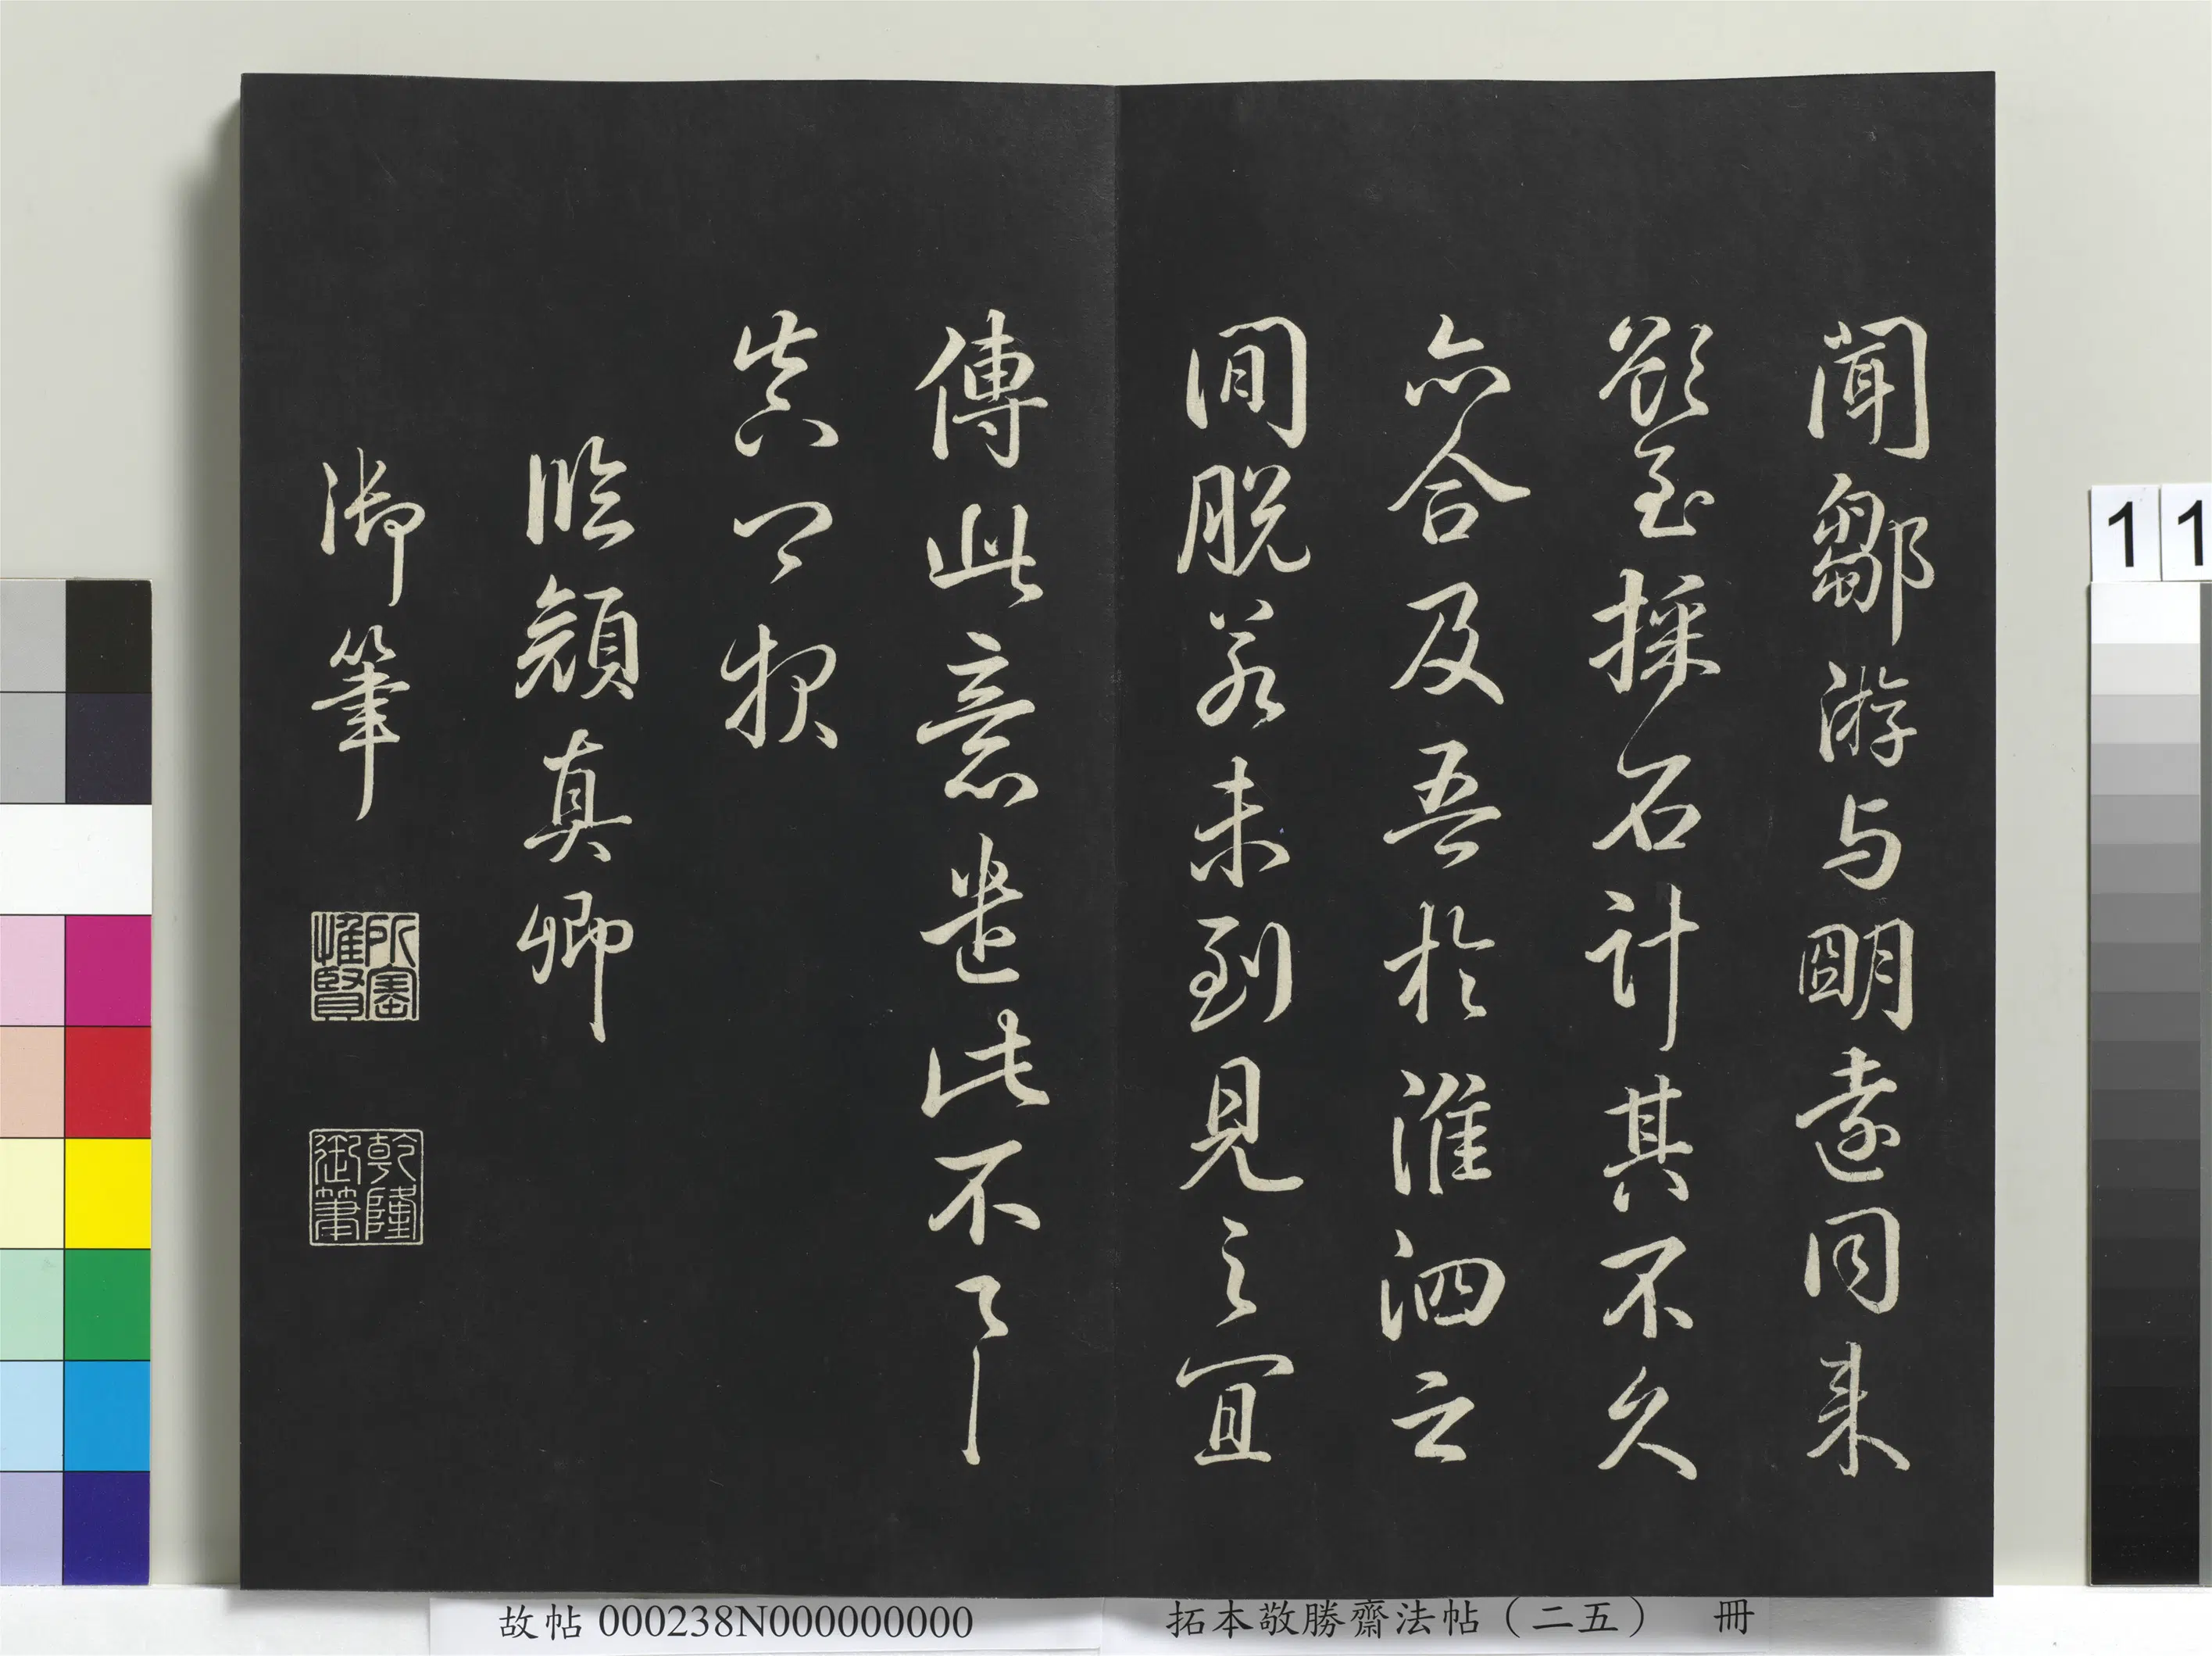 聞鄒游与明遠同来
欲至採石計其不久
亦合及吾於淮泗之
間脱若未到見之宜
傳此意遣此不
真卿報
臨顔真卿
御筆
所寶惟賢
乾隆御筆
故帖 000238N000000000
拓本敬勝齋法帖（二五） 冊
11